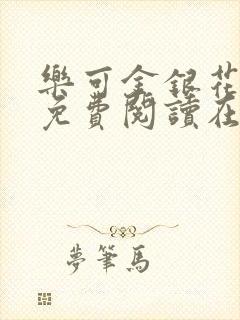 樂可金銀花
免費閱讀在
夢筆馬